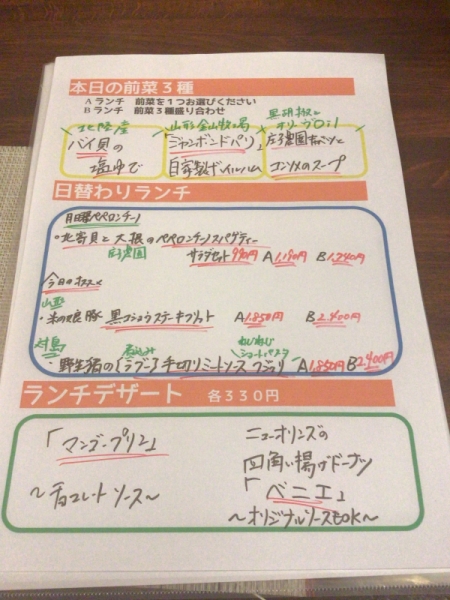 本日の前菜3種
Aランチ 前菜を1つお選びください
Bランチ 前菜3種盛り合わせ
北陸産
バイ貝の
塩ゆで
山形金山牧場
「ジャンボンドパリ」
自家製げハム
黒胡椒と
オリーブオイル
庄司農園キャベツと
コンソメのスープ
日替わりランチ
月曜ペペロンチーノ
・北寄貝と大根のペペロンチーノスパゲティー
庄司農園
サラダセット990円 A1,190円 B1,740円
今日のオススメ
山形
・米の娘豚 黒コショウステーキフリット A1,850円 B2,400円
対馬
煮込み
ねじねじ
ショートパスタ
・野生猪の〔ラグー〕手切りミートソース フジッリ A1,850円 B2,400円
ランチデザート 各330円
「マンゴープリン」
〜チョコレートソース〜
ニューオリンズの
四角い揚げドーナツ
「ベニエ」
〜オリジナルソースもOK〜